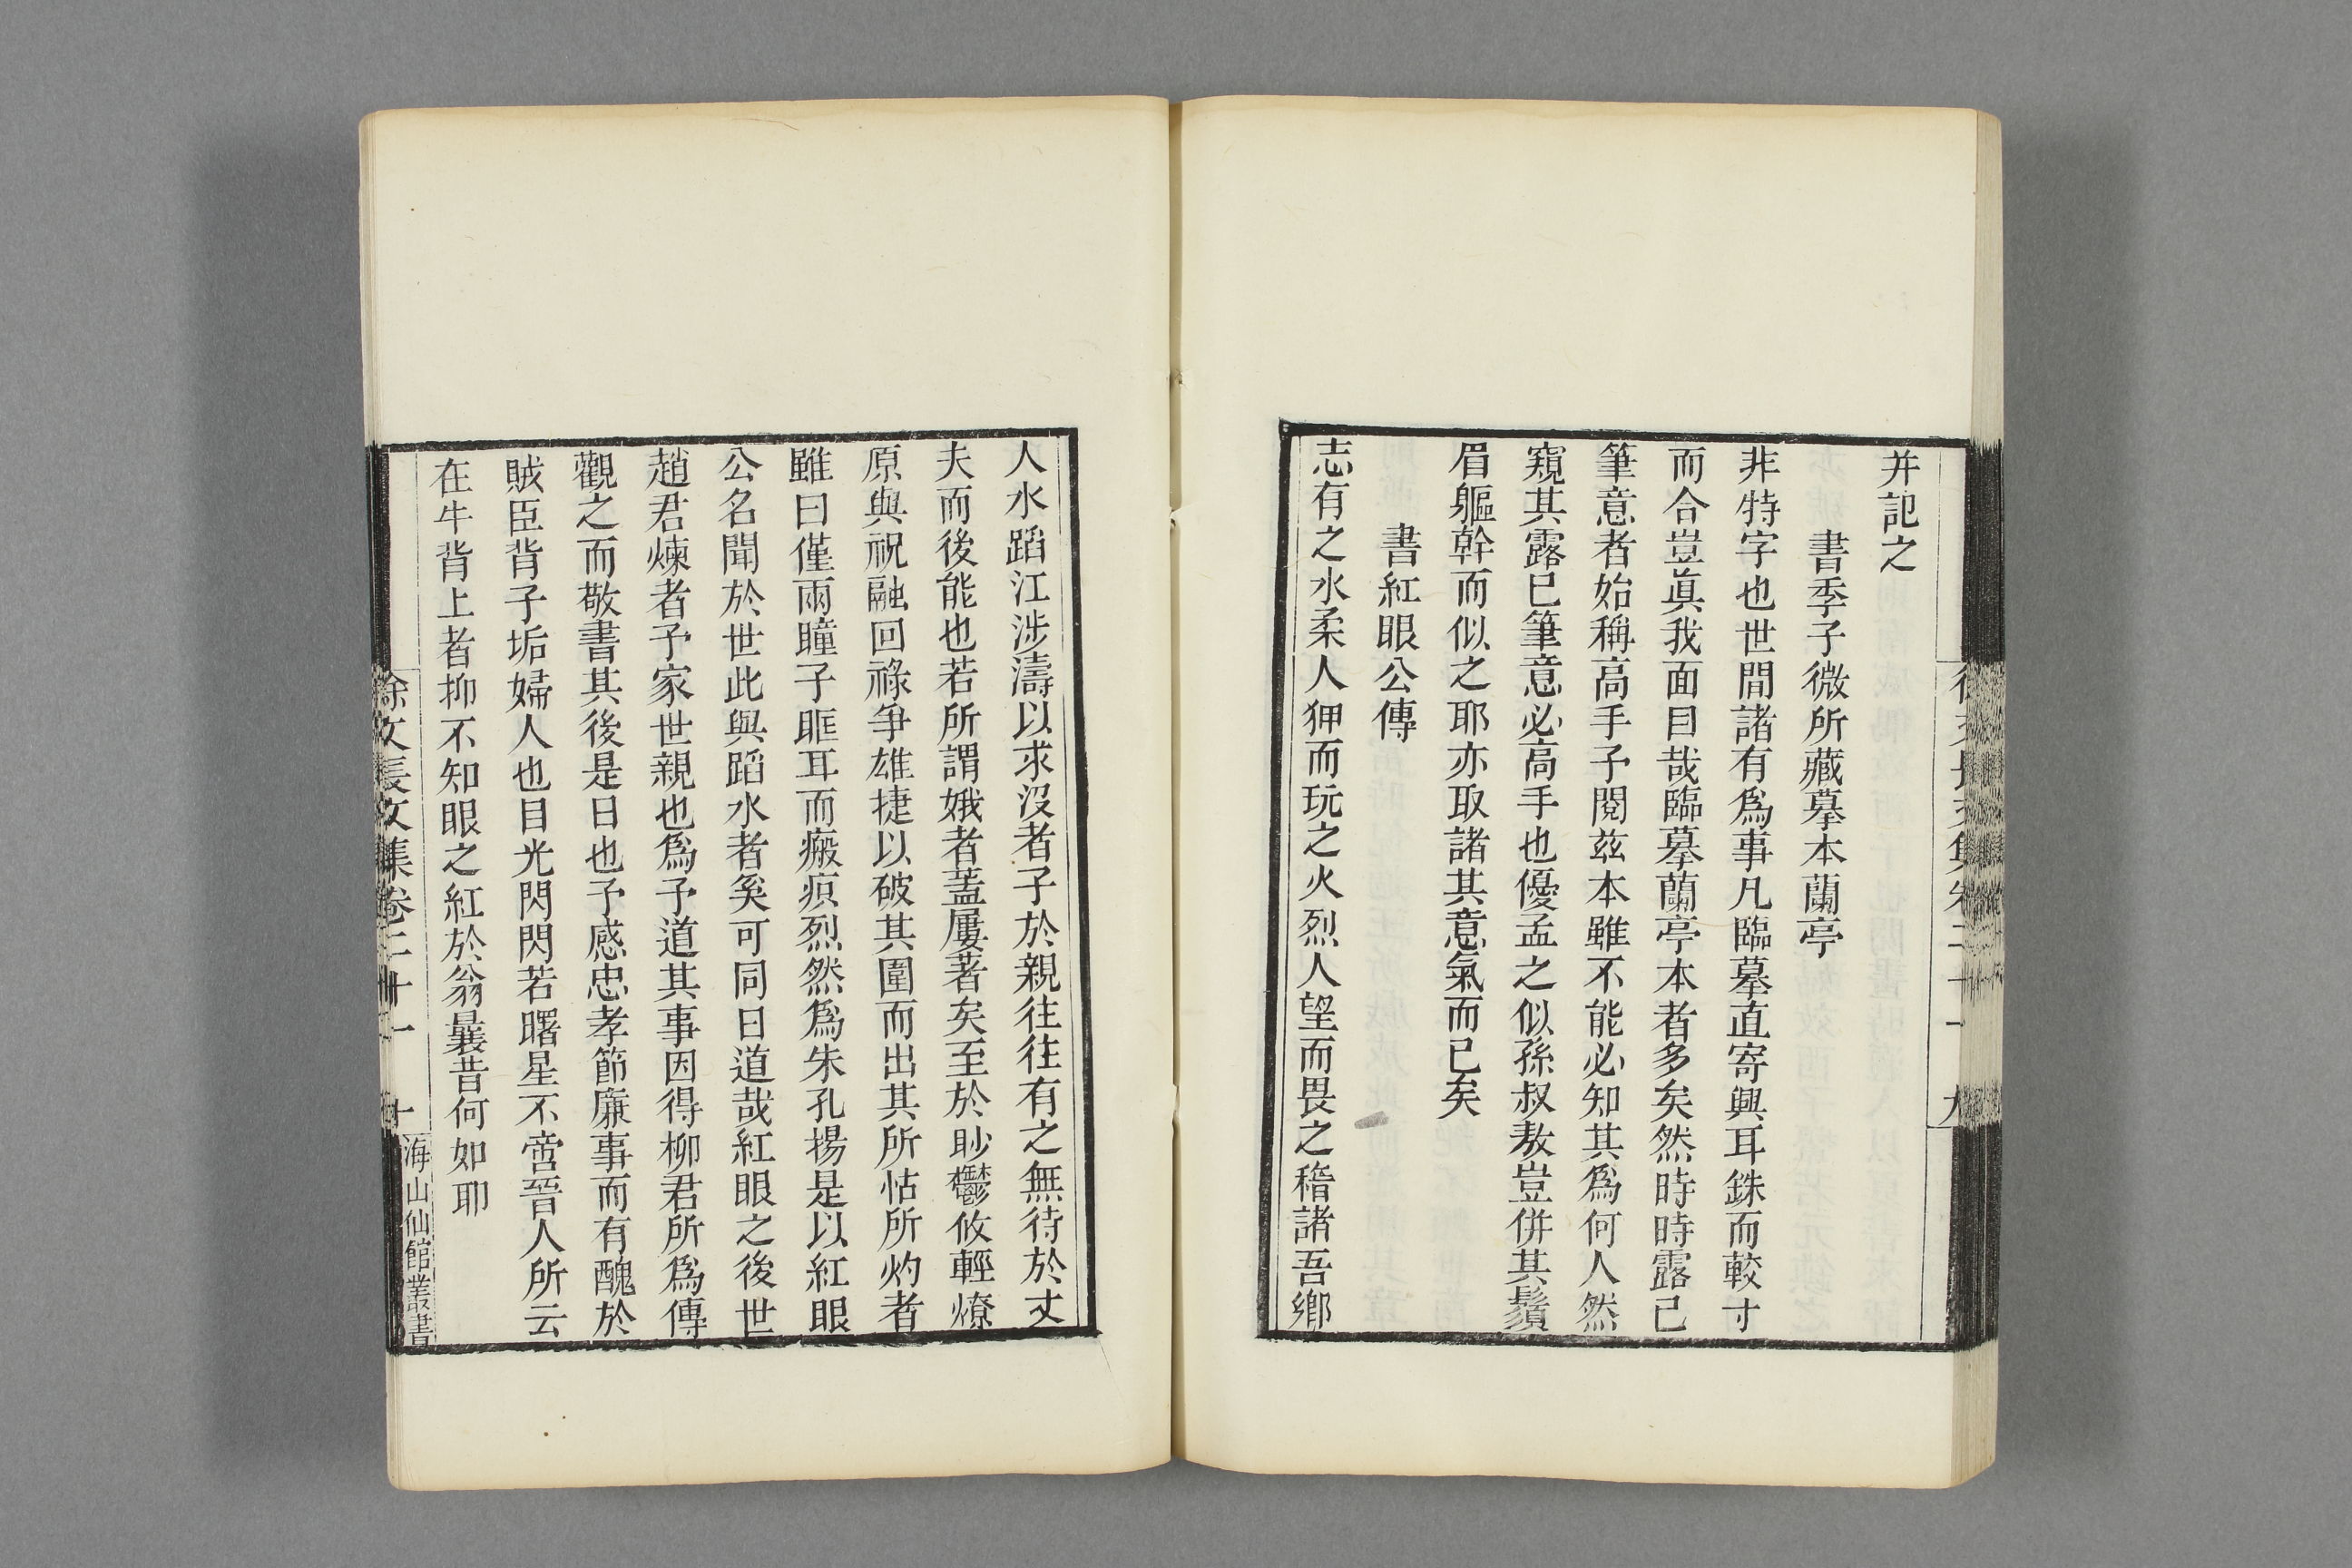 并記之
書季子微所藏摹本蘭亭
非特字也世間諸有爲事凡臨摹直寄興耳銖而較寸
而合豈眞我面目哉臨摹蘭亭本者多矣然時時露己
筆意者始稱高手予閱玆本雖不能必知其爲何人然
窺其露已筆意必高手也優孟之似孫叔敖豈併其鬚
眉軀幹而似之耶亦取諸其意氣而已矣
書紅眼公傳
志有之水柔人狎而玩之火烈人望而畏之稽諸吾鄉
人水蹈江涉濤以求沒者子於親往往有之無待於丈
夫而後能也若所謂娥者葢屢著矣至於眇鬱攸輕燎
原與祝融回祿爭雄捷以破其圍而出其所怙所灼者
雖曰僅兩瞳子眶耳而瘢痕烈然爲朱孔揚是以紅眼
公名聞於世此與蹈水者奚可同日道哉紅眼之後世
趙君煉者予家世親也爲予道其事因得柳君所爲傳
觀之而敬書其後是日也予感忠孝節廉事而有醜於
賊臣背子垢婦人也目光閃閃若曙星不啻晉人所云
在牛背上者抑不知眼之紅於翁曩昔何如耶
徐文長文集卷二十一 十
海山仙館叢書